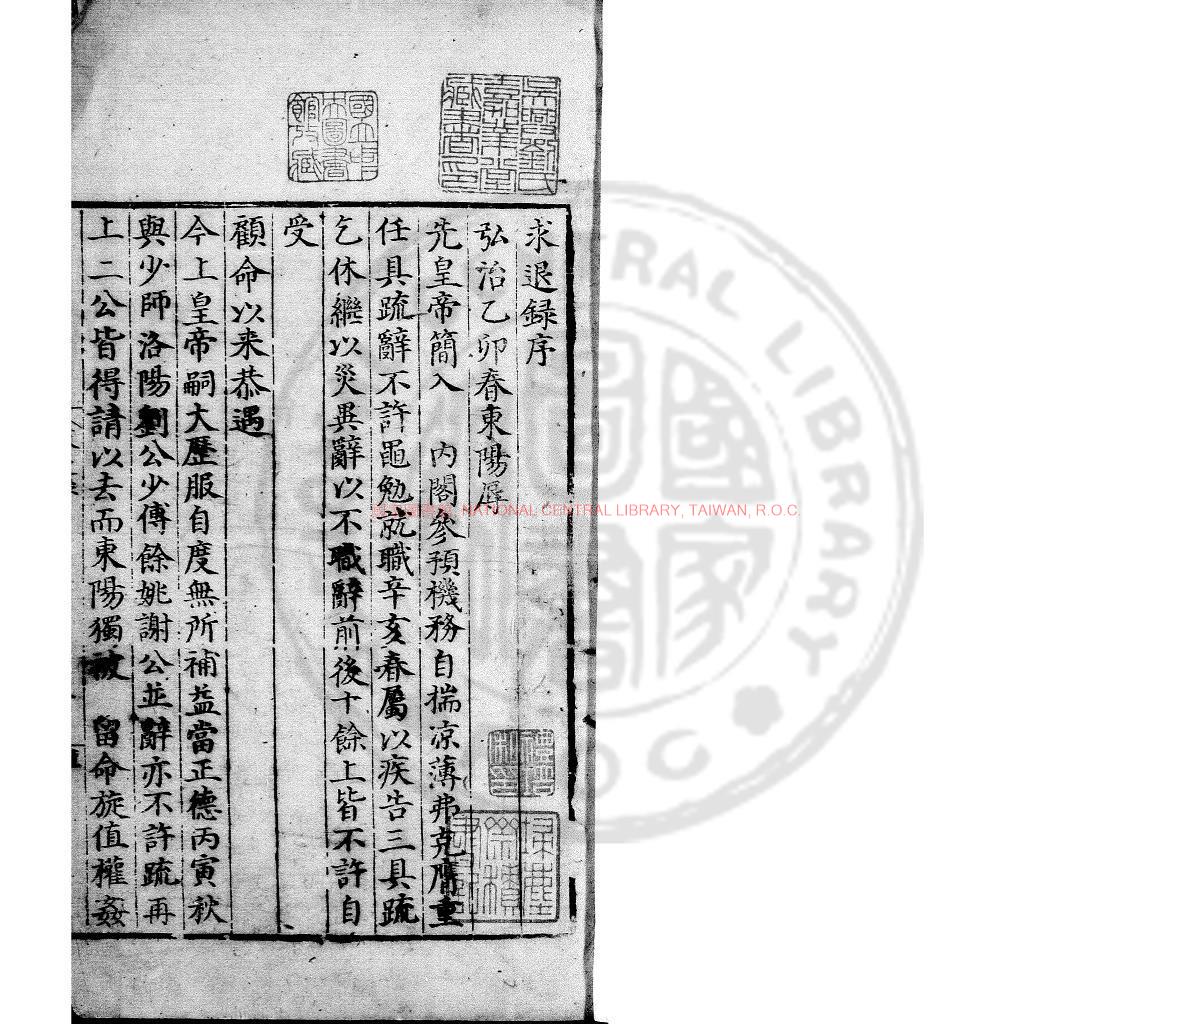 求退録序
弘治乙卯春東陽辱
先皇帝簡入　内閣參預機務自揣凉薄弗克膺重
任具疏辭不許黽勉就職辛亥春屬以疾告三具疏
乞休繼以災異辭以不職辭前後十餘上皆不許自
受
顧命以来恭遇
今上皇帝嗣大歷服自度無所補益當正德丙寅秋
與少師洛陽劉公少傅餘姚謝公並辭亦不許疏再
上二公皆得請以去而東陽獨被　留命旋值權姦
吳興劉氏嘉業堂藏書印
國立中央圖書館收藏
NATIONAL CENTRAL LIBRARY, TAIWAN, R.O.C.
CENTRAL LIBRARY
R.O.C.
國家